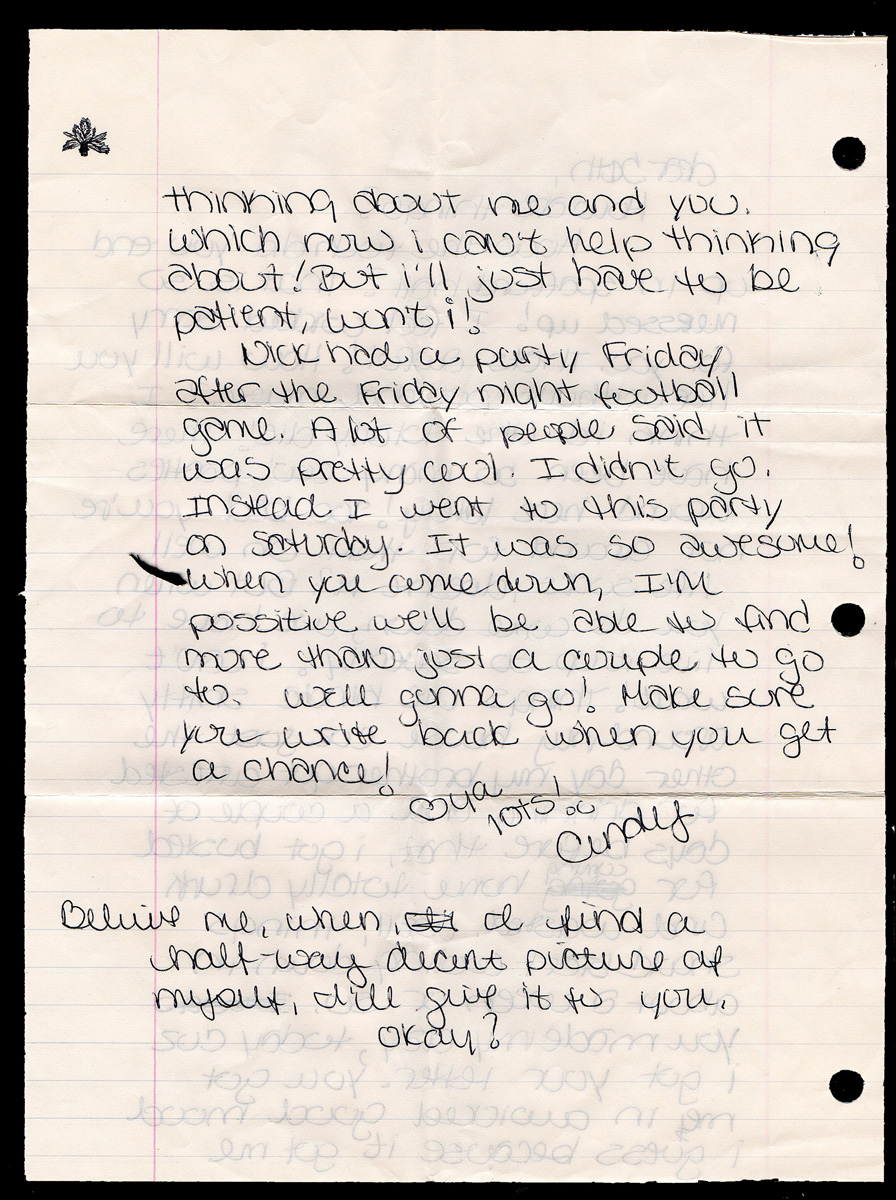 thinking about me and you.
which now i can't help thinking
about! But i'll just have to be
patient, won't i!
Nick had a party Friday
after the Friday night football
game. A lot of people said it
was pretty cool. I didn't go.
Instead I went to this party
on saturday. It was so awesome!
when you come down, I'm
possitive we'll be able to find
more than just a couple to go
to. well gonna go! Make sure
you write back when you get
a chance!
♡ ya
lots!
Cindy
Believe me, when I find a
half-way decent picture of
myself, I'll give it to you.
Okay?